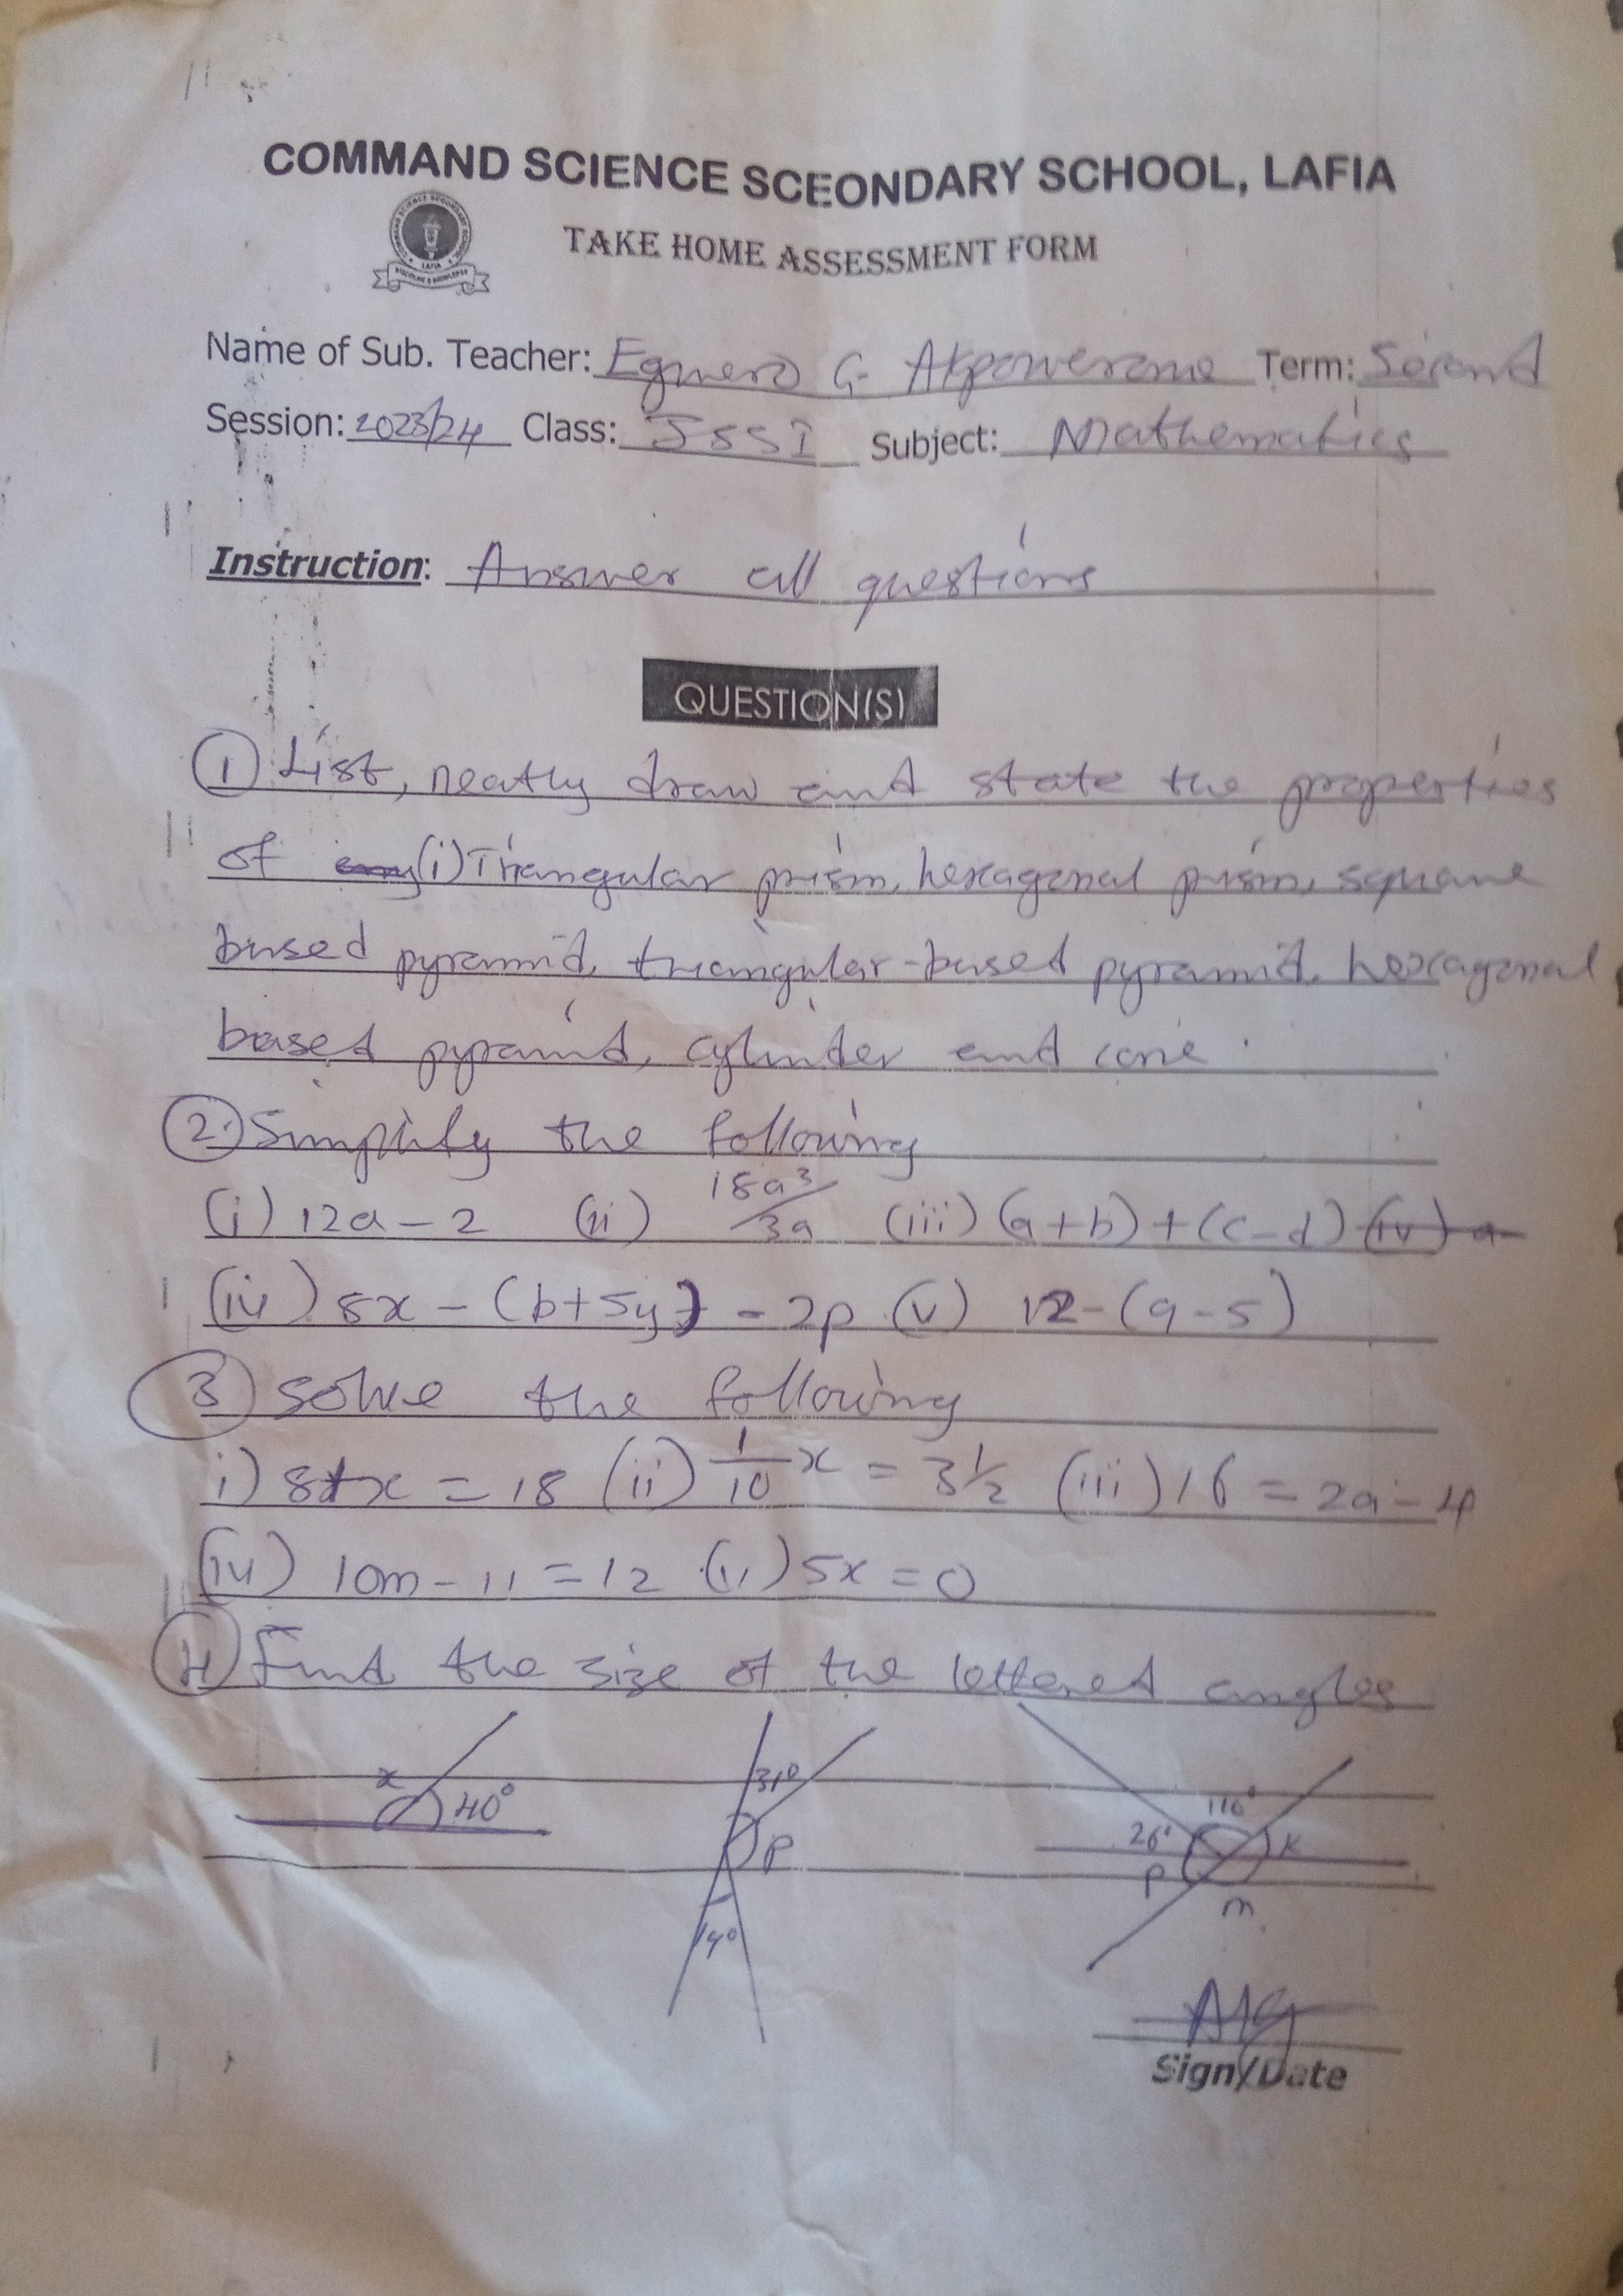 COMMAND SCIENCE SCEONDARY SCHOOL, LAFIA
TAKE HOME ASSESSMENT FORM
Name of Sub. Teacher: Eguero G Akpowerone Term: Second
Session: 2023/24 Class: JSSI Subject: Mathematics
Instruction: Answer all questions
QUESTION(S)
① List, neatly draw and state the properties
of (i) Triangular prism, hexagonal prism, square
based pyramid, triangular-based pyramid, hexagonal
based pyramid, cylinder and cone.
②. Simplify the following
(i) 12a - 2 (ii) 18a³/3a (iii) (a+b)+(c-d)
(iv) 8x - (b+5y) - 2p (v) 12-(9-5)
③ solve the following
i) 8+x = 18 (ii) 1/10 x = 3½ (iii) 16 = 2a - 4
(iv) 10m - 11 = 12 (v) 5x = 0
④ Find the size of the lettered angles
x 40° 31° P 14° 26° 110° K P m
Sign/Date